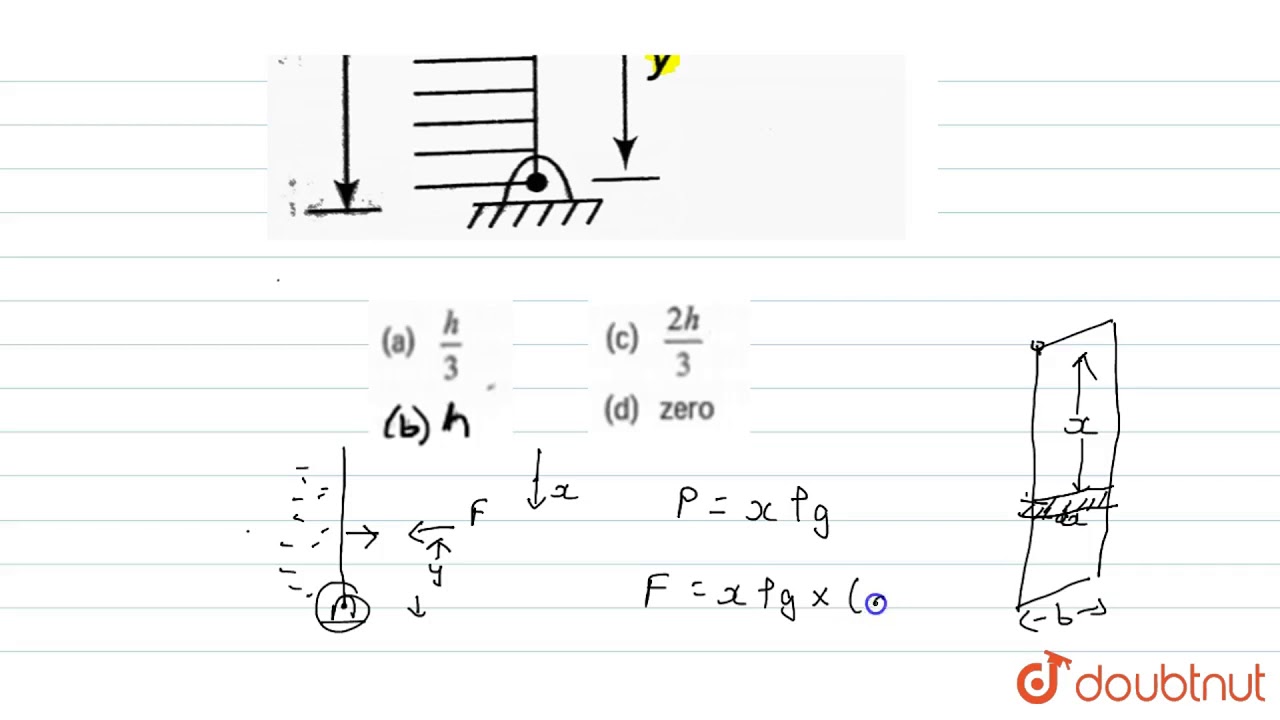 y
(a) h/3
(c) 2h/3
(b) h
(d) zero
x
F
y
P = xρg
F = xρg × (
x
dx
b
doubtnut